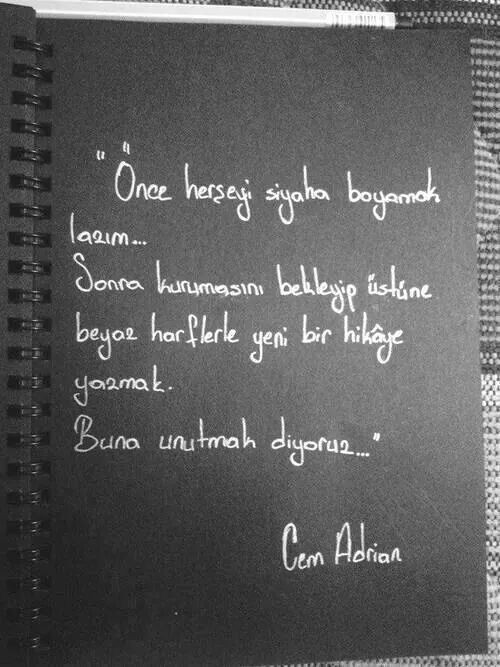 "Önce herşeyi siyaha boyamak
lazım...
Sonra kurumasını bekleyip üstüne
beyaz harflerle yeni bir hikâye
yazmak.
Buna unutmak diyoruz..."
Cem Adrian